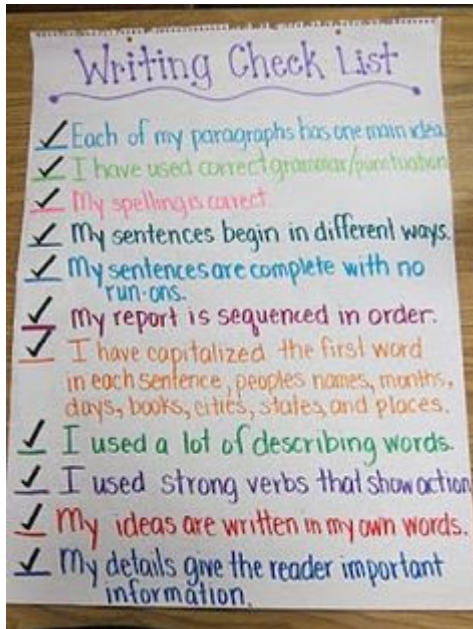 Writing Check List
Each of my paragraphs has one main idea.
I have used correct grammar/punctuation
My spelling is correct.
My sentences begin in different ways.
My sentences are complete with no
run-ons.
My report is sequenced in order.
I have capitalized the first word
in each sentence, peoples names, months,
days, books, cities, states, and places.
I used a lot of describing words.
I used strong verbs that show action
My ideas are written in my own words.
My details give the reader important
information.